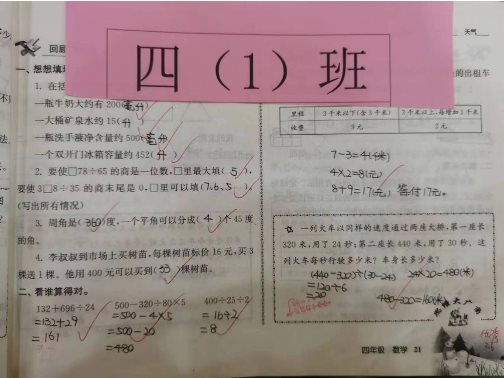 四（1）班
天气
回顾
一、想想填
1. 在括
一瓶牛奶大约有 200(毫升)
一大桶矿泉水约 15(升)
一瓶洗手液净含量约 500(毫升)
一个双开门冰箱容量约 452(升)
2. 要使□78÷65 的商是一位数，□里最大填(5)，
要使 3□8÷35 的商末尾是 0，□里可以填(7,6,5)。
(写出所有情况)
3. 周角是(360)度，一个平角可以分成(4)个 45 度
的角。
4. 李叔叔到市场上买树苗，每棵树苗标价 16 元，买 3
棵送 1 棵。他用 400 元可以买到(33)棵树苗。
二、看谁算得对。
132+696÷24
=132+29
=161
500-320÷80×5
=500-4×5
=500-20
=480
400÷25÷2
=16÷2
=8
的出租车
里程 3 千米以下(含 3 千米) 3 千米以上,每增加 1 千米
收费
7-3=4(千米)
4×2=8(元)
8+9=17(元) 答:付17元。
一列火车以同样的速度通过两座大桥，第一座长
320 米，用了 24 秒；第二座长 440 米，用了 30 秒，这
列火车每秒行驶多少米？车身长多少米？
(440-320)÷(30-24)
=120÷6
=20
24×20=480(米)
480-320=160(米)
四年级 数学 21